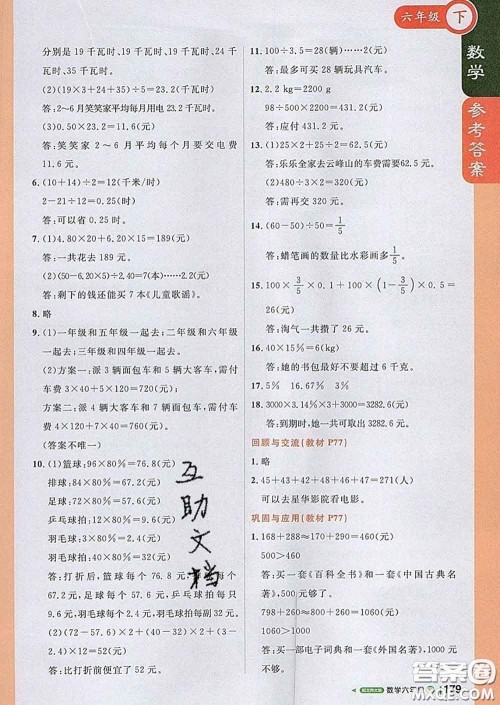 六年级 下
数学
参考答案
分别是 19 千瓦时、19 千瓦时、19 千瓦时、24
千瓦时、35 千瓦时。
(2)(19×3+24+35)÷5=23.2(千瓦时)
答:2~6 月笑笑家平均每月用电 23.2 千瓦时。
(3)0.50×23.2=11.6(元)
答:笑笑家 2~6 月平均每个月要交电费
11.6 元。
6. (10+14)÷2=12(千米/时)
2-21÷12=0.25(时)
答:可以省 0.25 时。
7. (1)4.80×20+1.64×20+6.20×5=159.8(元)
答:一共花去
(2)(50-6.20×5)÷2.64≈7(本)
答:剩下的钱还能买 7 本《儿童歌谣》。
8. 略
9. (1)一年级和五年级一起去;二年级和六年级
一起去;三年级和四年级一起去。
(2)方案一:派 3 辆面包车和 5 辆大客车,需付
车费 3×40+5×120=720(元);
方案二:派 4 辆大客车和 7 辆面包车,需付车费
4×120+7×40=760(元)
(答案不唯一)
10. (1)篮球:96×80%=76.8(元)
排球:84×80%=67.2(元)
足球:72×80%=57.6(元)
乒乓球拍:12×80%=9.6(元)
羽毛球:2×80%=1.6(元)
羽毛球拍:40×80%=32(元)
答:打折后,篮球每个 76.8 元,排球每个
67.2 元,足球每个 57.6 元,乒乓球拍每副
9.6 元,羽毛球每个 1.6 元,羽毛球拍每副 32 元。
(2)(72-57.6)×2+(40-32)×2+(2-1.6)×
=52(元)
答:比打折前便宜了 52 元。
互助文档
11. 100÷3.5≈28(辆)……2(元)
答:最多可买 28 辆玩具汽车。
12. 2.2 kg=2200 g
98÷500×2200=431.2(元)
答:应付 431.2(元)
13. (1)25×2+25÷2=62.5(元)
答:乐乐全家去云峰山的车费需要62.5元。
(2)480÷2×30=7200(元)
答:需再交 7200 元。
14. (60-50)÷50=1/5
答:蜡笔画的数量比水彩画多1/5。
15. 100×3/5×0.1+100×(1-3/5)×0.5=26(元)
答:淘气一共攒了 26 元。
16. 40×15%=6(kg)
答:她的书包最好不要超过 6 千克。
17. 5% 16.67%
18. 3000×3.14%×3+3000=3282.6(元)
答:到期时,她一共能取回 3282.6 元。
回顾与交流(教材 P77)
1. 略
2. 45+43+42+48+47+46=271(人)
答:可以去星华影院看电影。
巩固与应用(教材 P77)
1. 168+288≈170+290=460(元)
500>460
答:买一套《百科全书》和一套《中国古典名
著》,500 元够了。
798+260≈800+260=1060(元)
1060>1000
答:买一部电子词典和一套《外国名著》,1000 元
不够。
数学六年级 下 179
答案圈